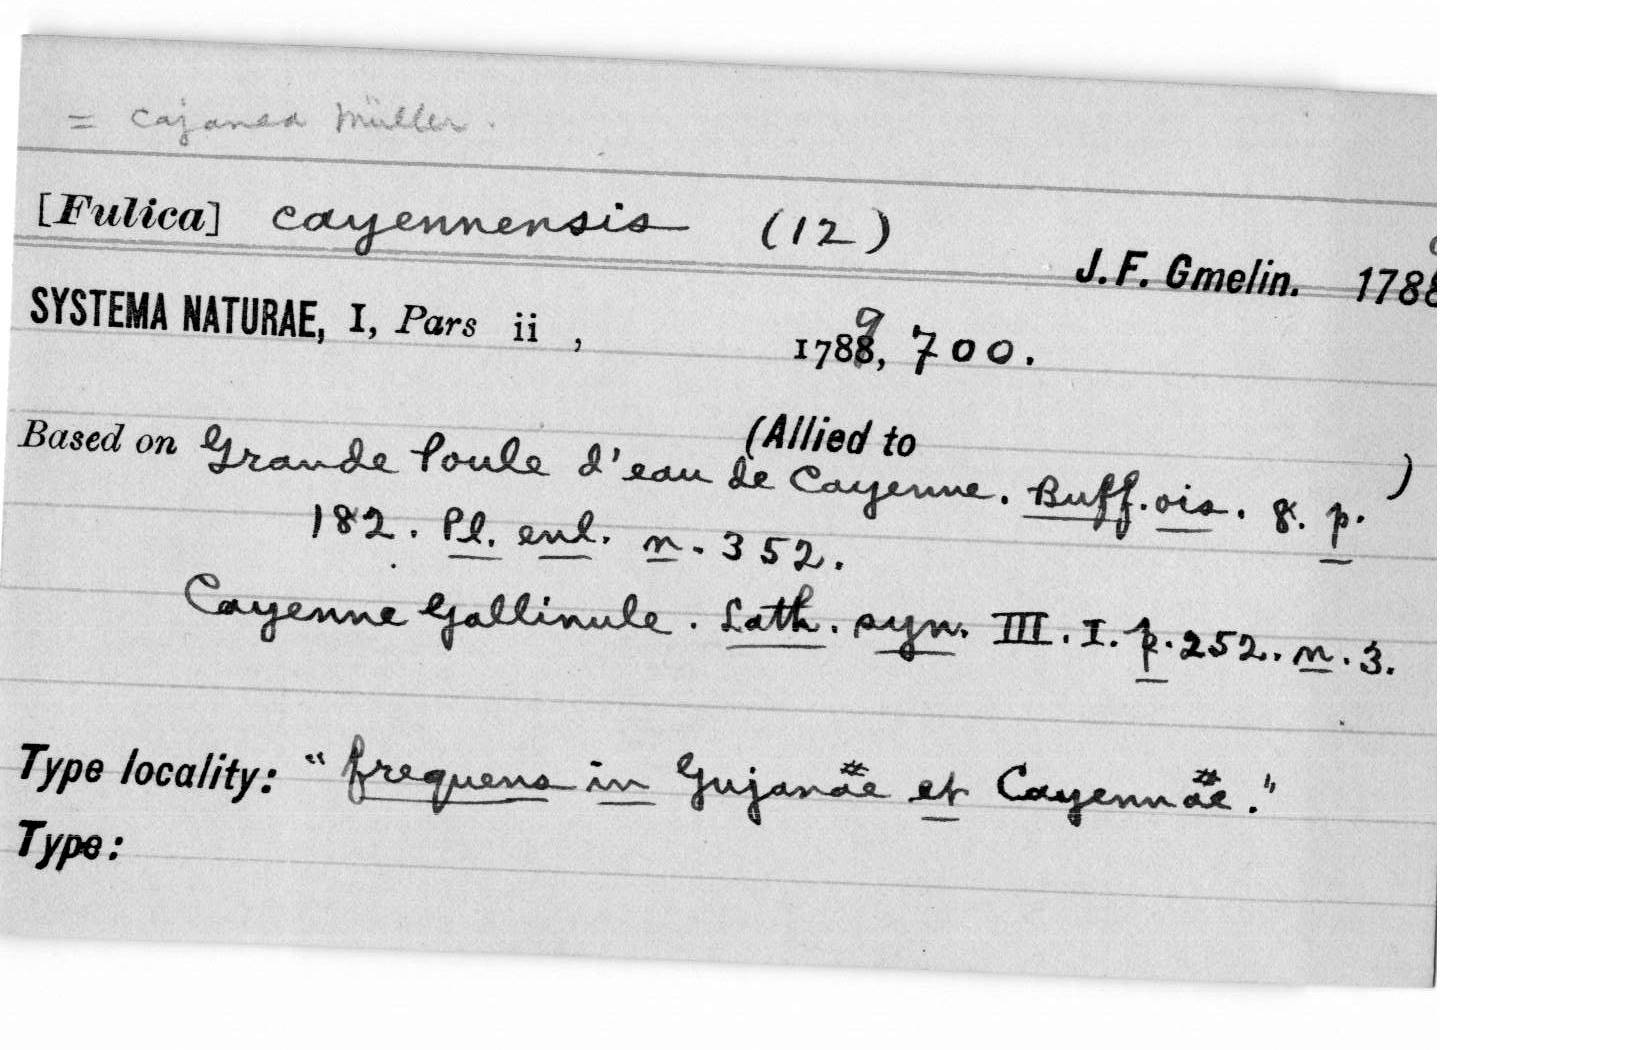 = cajanea Müller.
[Fulica] cayennensis (12)
J. F. Gmelin. 1788
SYSTEMA NATURAE, I, Pars ii , 1788, 9 700.
(Allied to )
Based on Grande Poule d'eau de Cayenne. Buff. ois. 8. p.
182. Pl. enl. n. 352.
Cayenne Gallinule. Lath. syn. III. I. p. 252. n. 3.
Type locality: "frequens in Gujanae et Cayennae."
Type: